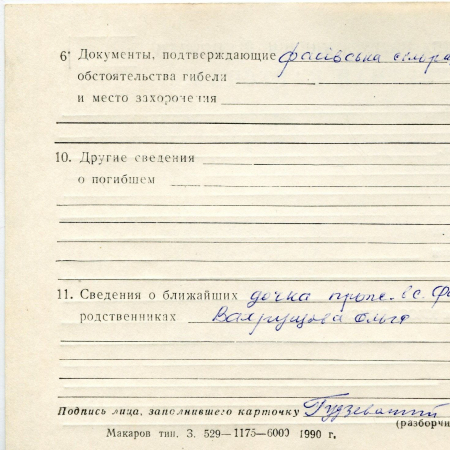 6* Документы, подтверждающие фасівська сільра
обстоятельства гибели
и место захоронения
10. Другие сведения
о погибшем
11. Сведения о ближайших дочка прож. в с. Фа
родственниках Вахрушова Ольга
Подпись лица, заполнившего карточку Гудзеватий
(разборчи
Макаров тип. З. 529—1175—6000 1990 г.